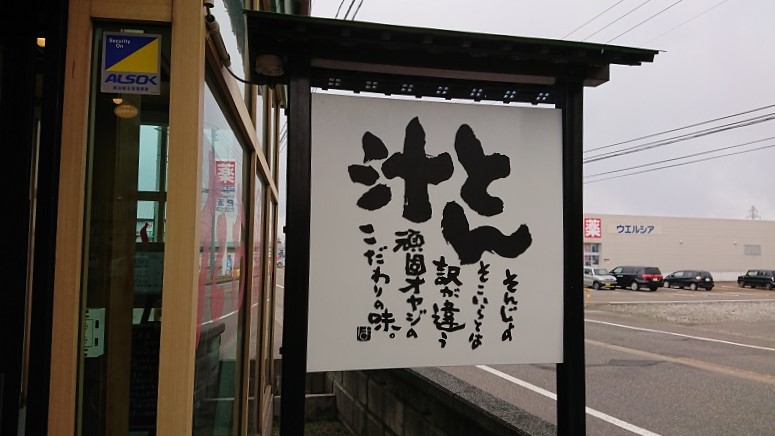 とん
汁
そんじょ
そこいらとは
訳が違う
頑固オヤジの
こだわりの味。
Security
On
ALSOK
薬
薬
ウエルシア